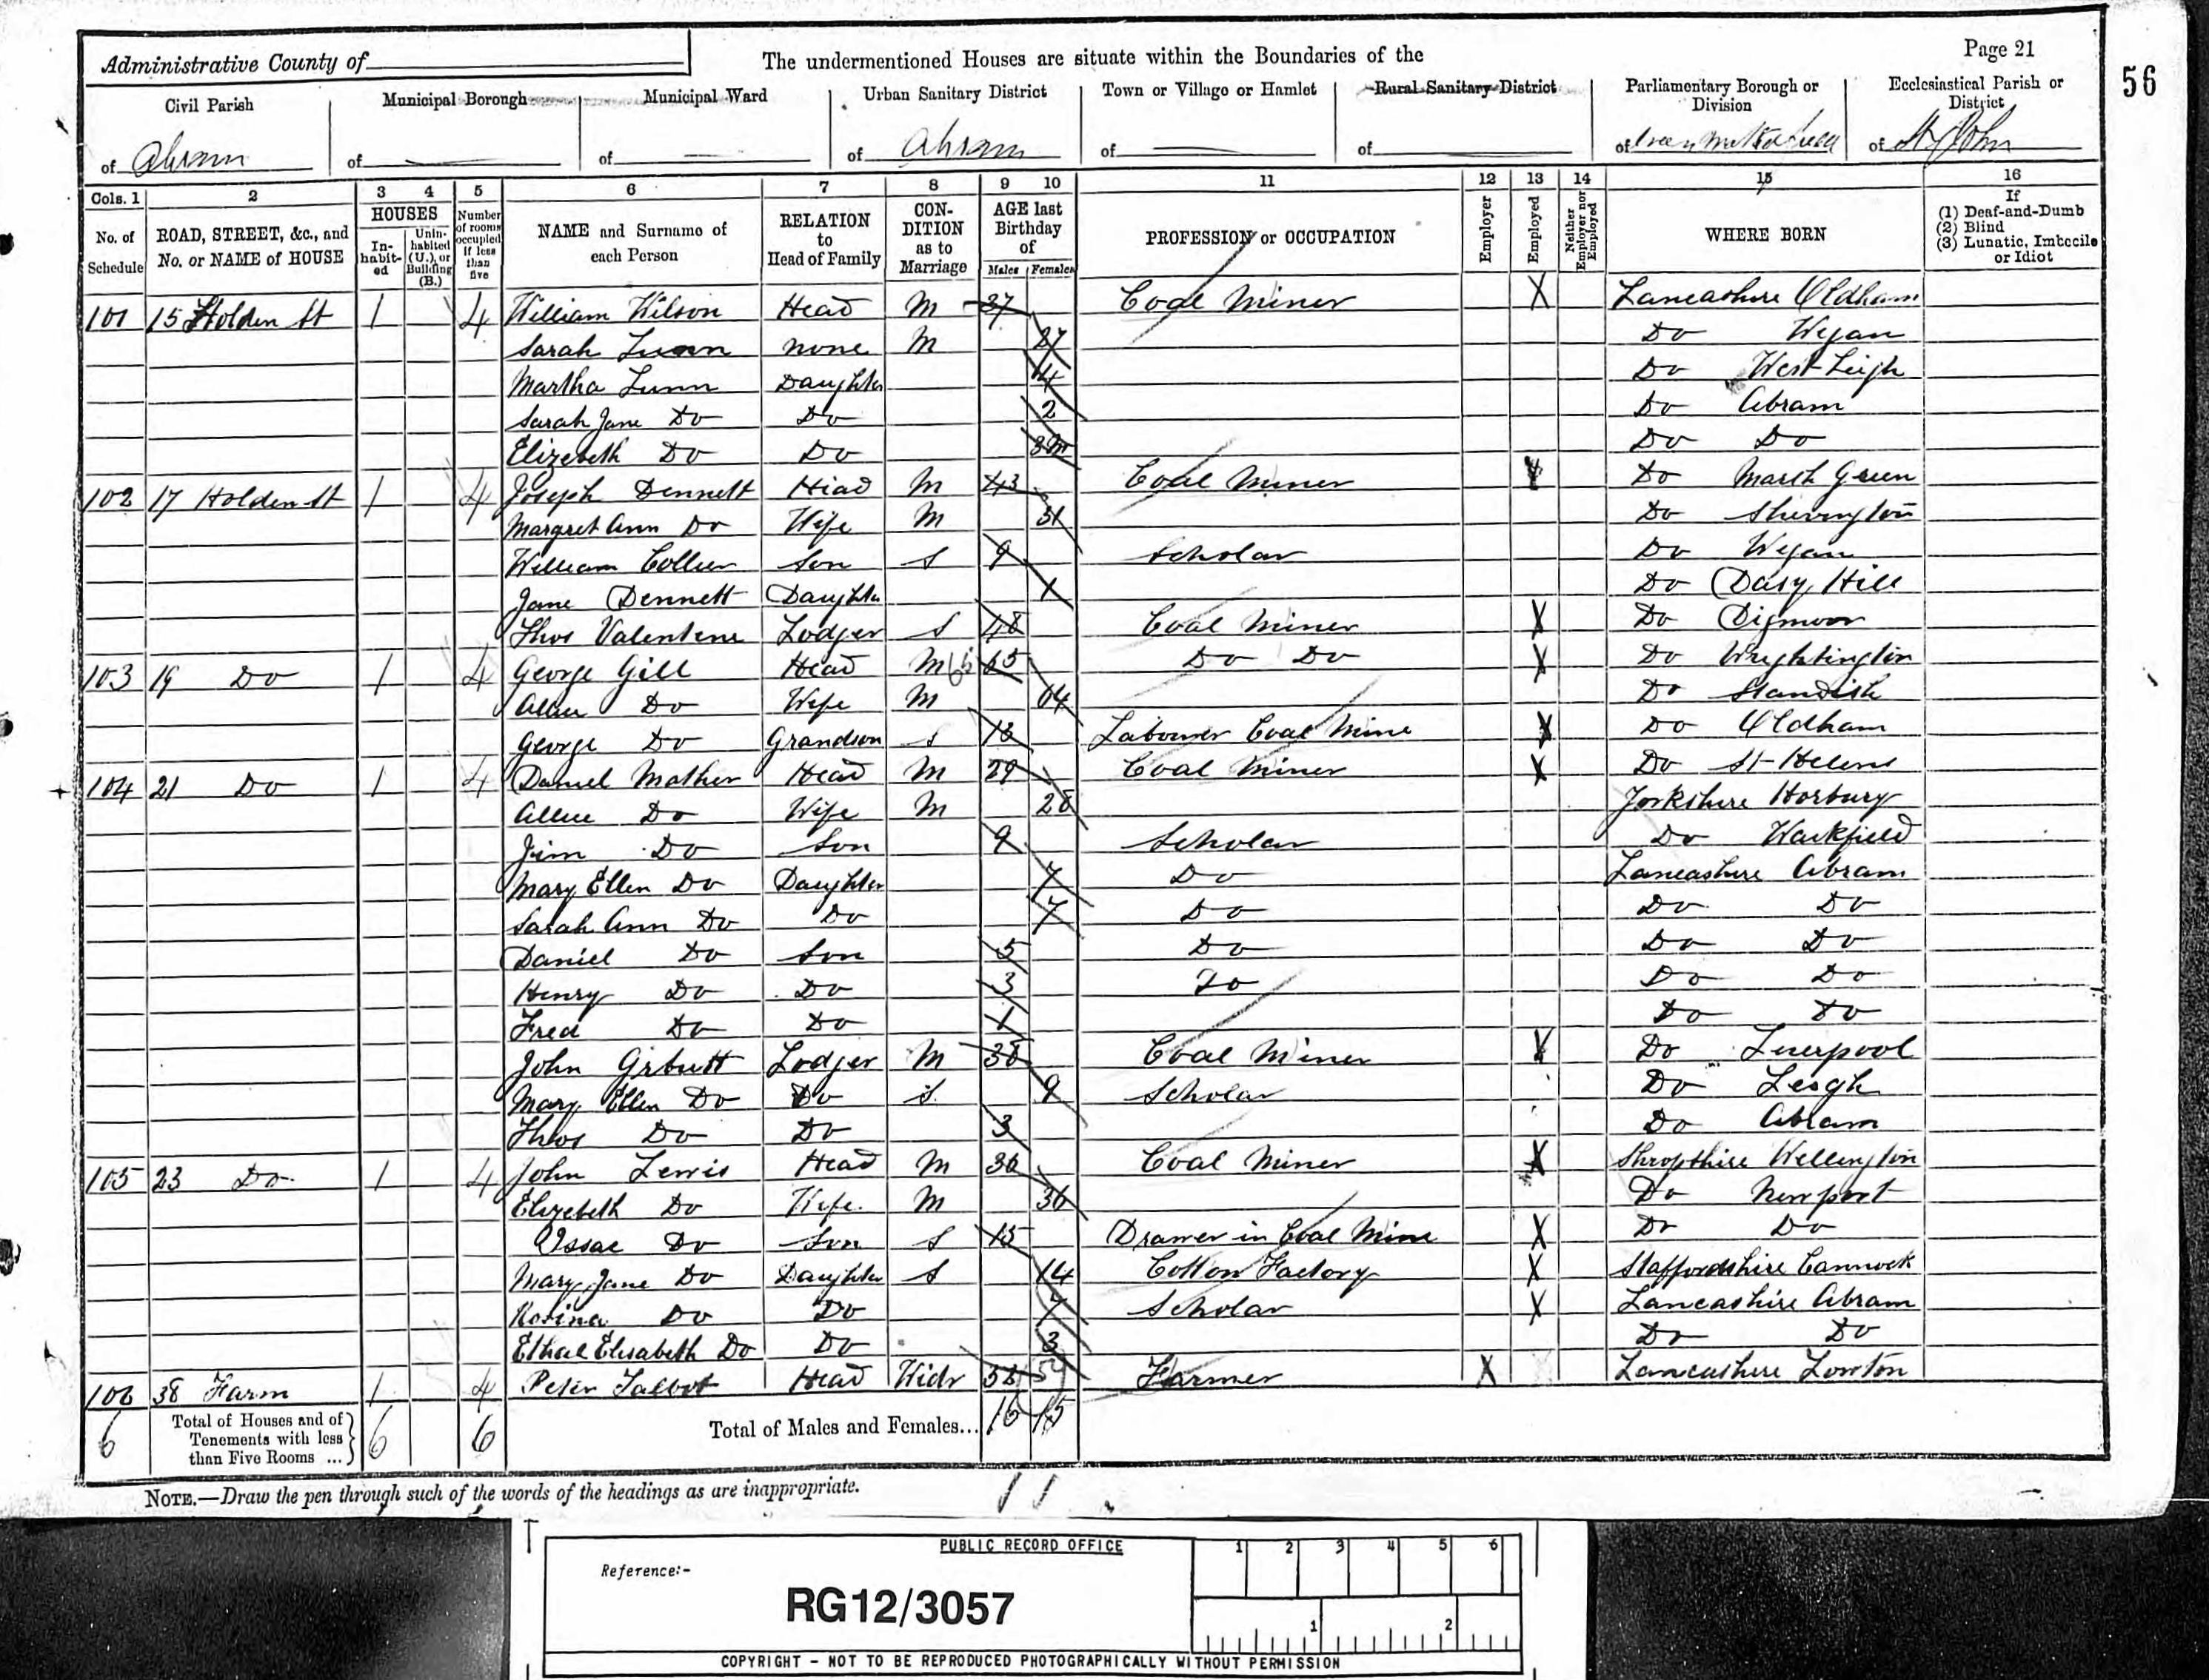 Administrative County of
The undermentioned Houses are situate within the Boundaries of the
Page 21
56
Civil Parish
Municipal Borough
Municipal Ward
Urban Sanitary District
Town or Village or Hamlet
Rural Sanitary District
Parliamentary Borough or Division
Ecclesiastical Parish or District
of Abram
of
of
of Abram
of
of
of
of St John
Cols. 1 2 3 4 5 6 7 8 9 10 11 12 13 14 15 16
No. of Schedule
ROAD, STREET, &c., and No. or NAME of HOUSE
HOUSES
In-habit-ed
Unin-habited (U.), or Building (B.)
Number of rooms occupied if less than five
NAME and Surname of each Person
RELATION to Head of Family
CON-DITION as to Marriage
AGE last Birthday of
Males Females
PROFESSION or OCCUPATION
Employer
Employed
Neither Employer nor Employed
WHERE BORN
If
(1) Deaf-and-Dumb
(2) Blind
(3) Lunatic, Imbecile or Idiot
101 15 Holden St 1 4 William Wilson Head M 37 Coal Miner X Lancashire Oldham
Sarah Lunn none M 27 Do Wigan
Martha Lunn Daughter 4 Do West Leigh
Sarah Jane Do Do 2 Do Abram
Elizebeth Do Do 3m Do Do
102 17 Holden St 1 4 Joseph Dennett Head M 43 Coal Miner X Do Marsh Green
Margret Ann Do Wife M 31 Do Shevington
William Collier Son S 9 Scholar Do Wigan
Jane Dennett Daughter 1 Do Dasy Hill
Thos Valentine Lodger S 48 Coal Miner X Do Digmoor
103 19 Do 1 4 George Gill Head M 65 65 Do Do X Do Wrightington
Do Wife M 64 Do Standish
George Do Grandson S Labourer Coal Mine X Do Oldham
104 21 Do 1 4 Daniel Mather Head M 29 Coal Miner X Do St Helens
Do Wife M 28 Yorkshire Horbury
Jim Do Son 9 Scholar Do Wackfield
Mary Ellen Do Daughter 7 Do Lancashire Abram
Sarah Ann Do Do 7 Do Do Do
Daniel Do Son 5 Do Do Do
Henry Do Do 3 Do Do Do
Fred Do Do 1 Do Do
John Lodger M 38 Coal Miner X Do Liverpool
Mary Ellen Do Do S 9 Scholar Do Leigh
Thos Do Do 3 Do Abram
105 23 Do 1 4 John Lewis Head M 36 Coal Miner X Shropshire Wellington
Elizebeth Do Wife M 36 Do Newport
Issac Do Son S 15 Drawer in Coal Mine X Do Do
Mary Jane Do Daughter S 14 Cotton Factory X Staffordshire Cannock
Rosina Do Do 7 Scholar X Lancashire Abram
Ethel Elisabeth Do Do 3 Do Do
106 38 Farm 1 4 Peter Talbot Head Widr Farmer X Lancashire Lowton
6 Total of Houses and of Tenements with less than Five Rooms ... 6 6 Total of Males and Females... 16 15
NOTE.—Draw the pen through such of the words of the headings as are inappropriate.
PUBLIC RECORD OFFICE
1 2 3 4 5 6
Reference:-
RG12/3057
1 2
COPYRIGHT - NOT TO BE REPRODUCED PHOTOGRAPHICALLY WITHOUT PERMISSION